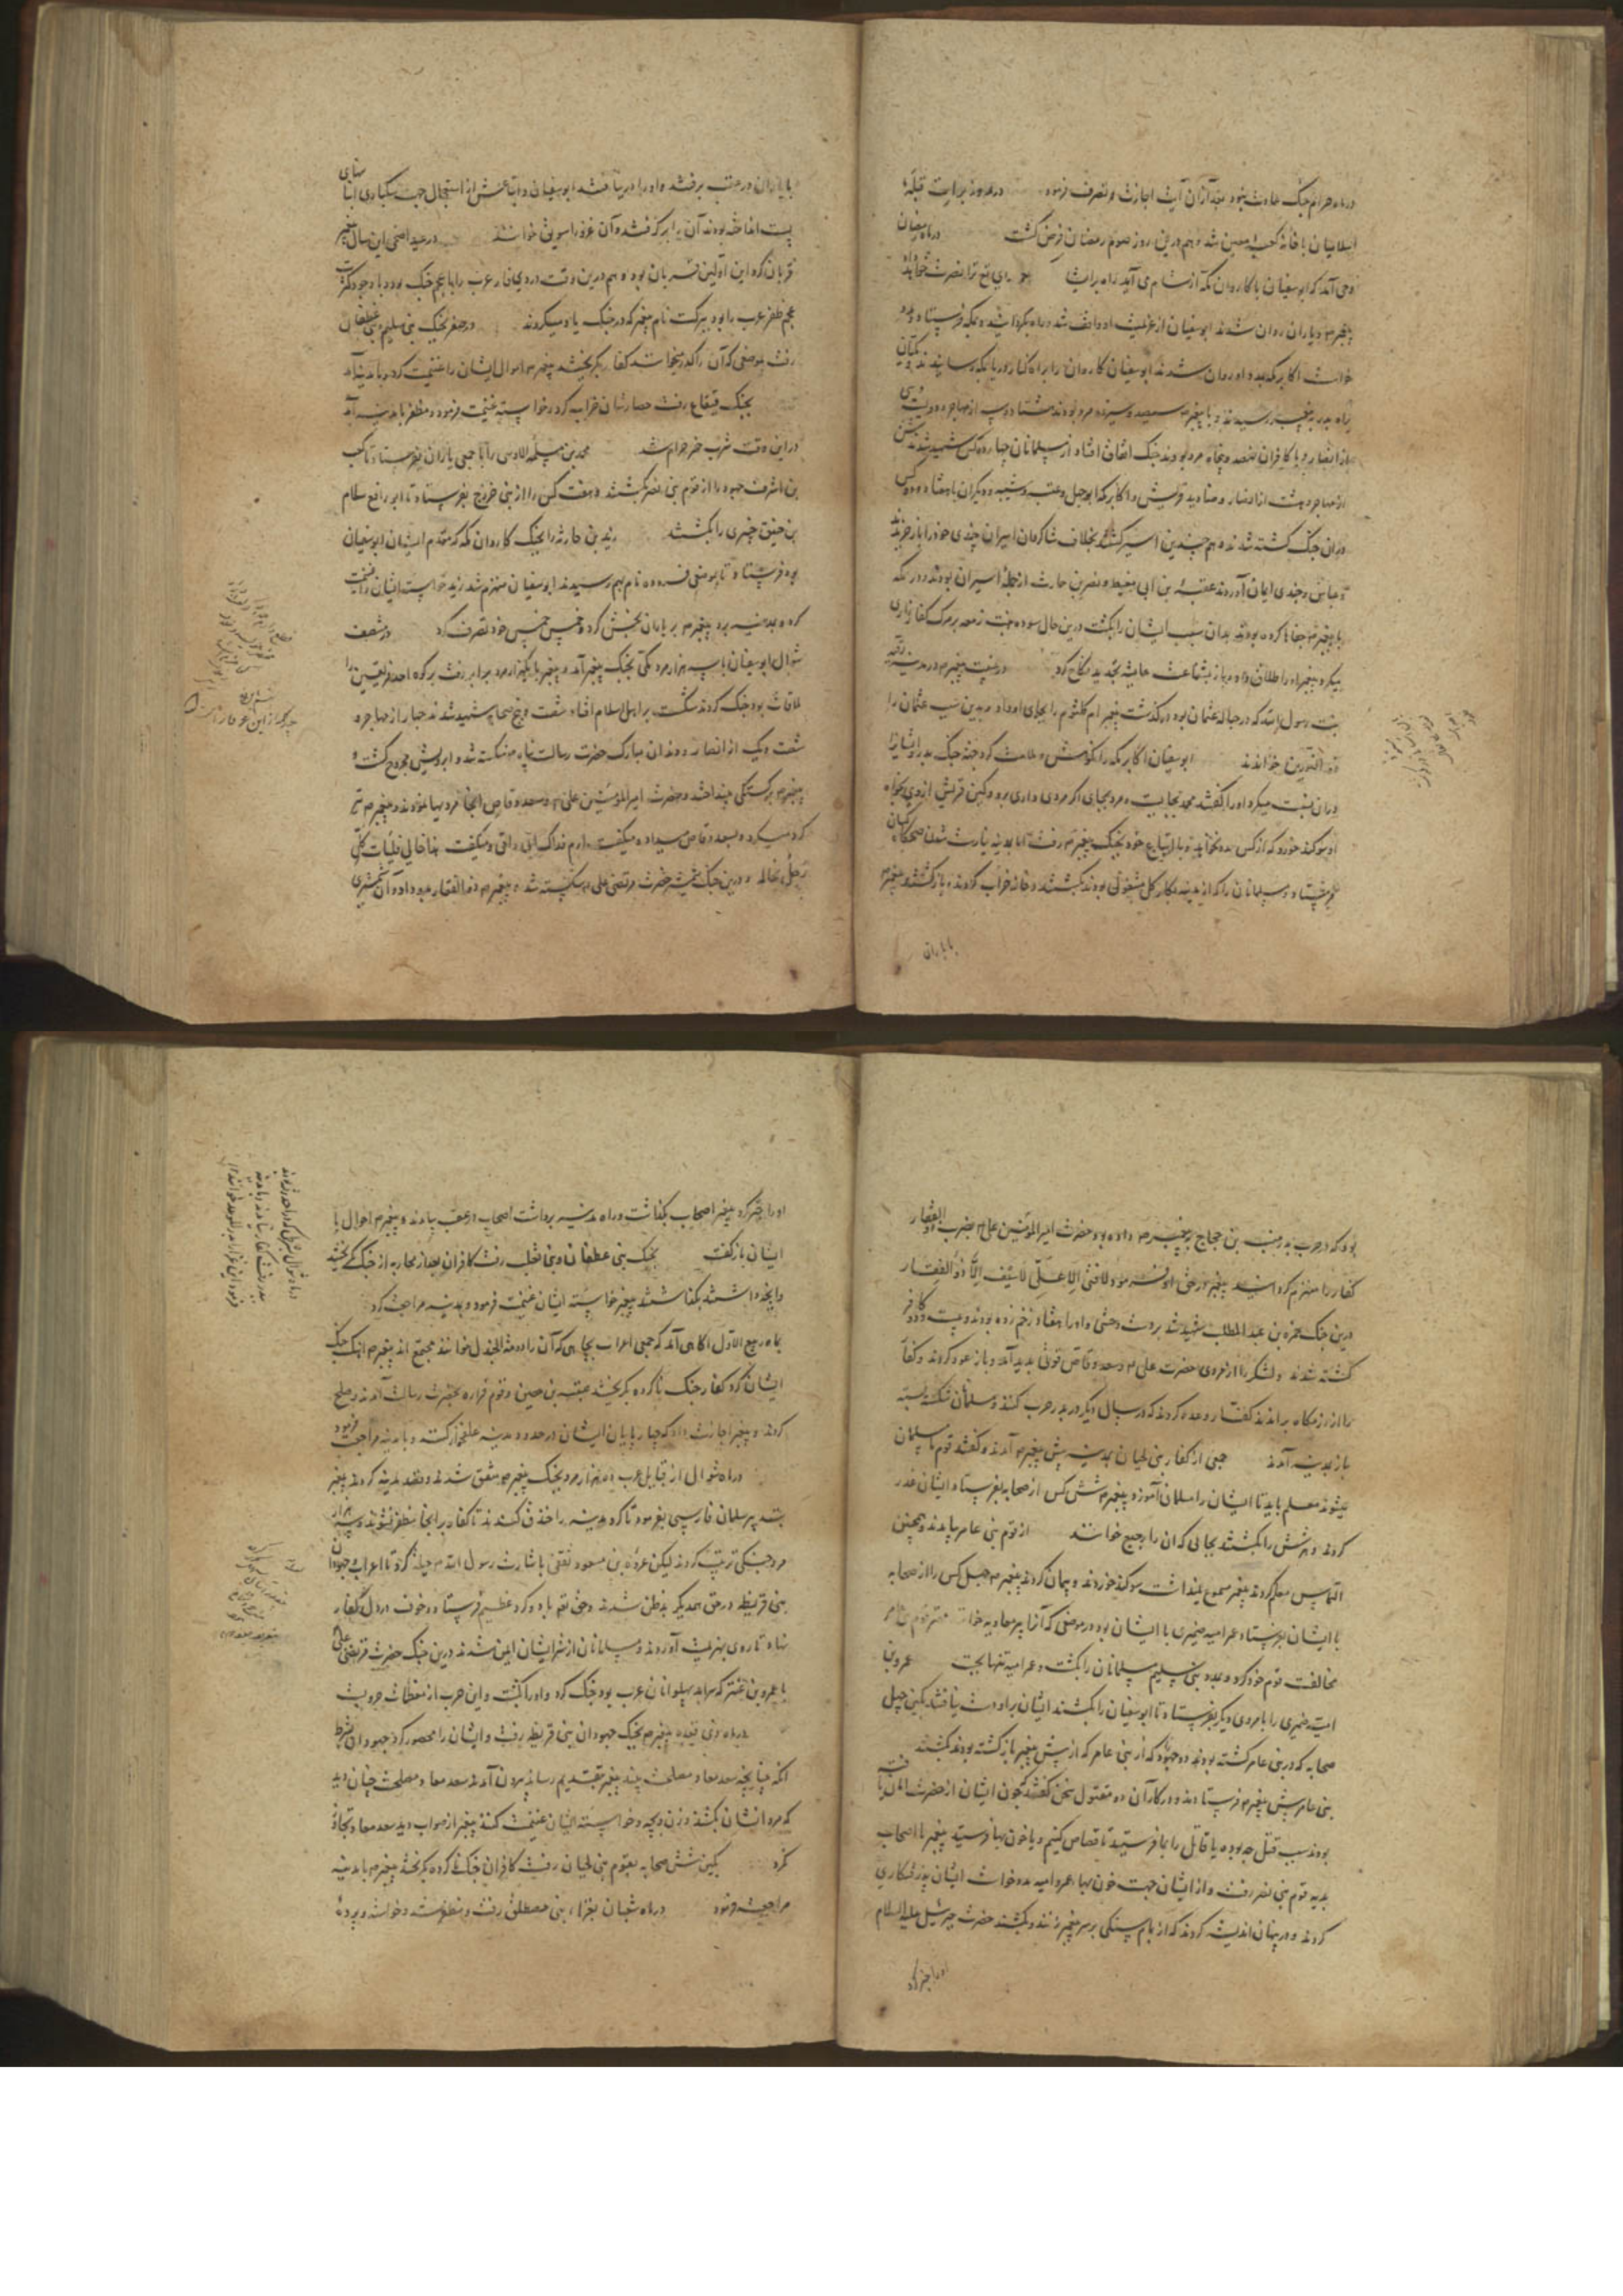 در ماه حرام جنگ حادث بنمود بعد از آن آیت اجازت و تصرف فرمود
اسلامیان با خانه کعبه معین شد و هم درین روز صوم رمضان فرض گشت در ماه رمضان
وحی آمد که ابوسفیان با کاروان مکه از شام می آید راه برایشان
پیغمبر م و یاران روان شدند ابوسفیان از عزیمت او واقف شد و راه بگردانید و بمکه فرستاد و مدد
خواست اکابر مکه بمدد او روان شدند ابوسفیان کاروان را براه کنار دریا بمکه رسانید
براه بدر به پیغمبر رسیدند و با پیغمبر سیصد و سیزده مرد بودند هشتاد و سه از مهاجر و دویست و سی
از انصار و با کافران نهصد و پنجاه مرد بودند جنگ اتفاق افتاد از مسلمانان چهارده کس شهید شدند شش
از مهاجر و هشت از انصار و صنادید قریش و اکابر مکه ابوجهل و عتبه و شیبه و دیگران با هفتاد
در آن جنگ کشته شدند و هم چندین اسیر گشتند بخلاف شاگردان اسیران چندی خود را باز خریدند
و عباس و چندی ایمان آوردند عقبة بن ابی معیط و نضر بن حارث از جمله اسیران بودند و در مکه
با پیغمبر م جفاها کرده بودند بدان سبب ایشان را بکشت درین حال سوده بنت زمعه بر مرگ کفار زاری
میکرد پیغمبر او را طلاق داد و باز بشفاعت عایشه تجدید نکاح کرد در غیبت پیغمبر م در مدینه رقیه
بنت رسول الله که در حباله عثمان بود درگذشت پیغمبر ام کلثوم را بجای او داد و بدین سبب عثمان را
ذو النورین خواندند ابوسفیان اکابر مکه را نکوهش و ملامت کرد
او سوگند خورد که از کس مدد نخواهد و با اتباع خود بجنگ پیغمبر م رفت اما بمدینه نیارست شدن
بفرستاد و مسلمانان را که از مدینه بکار گل مشغول بودند بکشتند و خانه خراب کردند و بازگشتند و پیغمبر م
با یاران
با یاران در عقب برفتند و او را در نیافتند ابوسفیان و اتباعش از استعجال جهت سبکباری انبانهای
پست انداخته بودند آن را برگرفتند و آن غزو را سویق خوانند در عید اضحی این سال پیغمبر
قربان کرد این اولین قربان بود و هم درین وقت در ذی قار عرب را با عجم جنگ بود و با وجود کثرت
عجم ظفر عرب را بود ببرکت نام پیغمبر که در جنگ یاد میکردند در صفر بجنگ بنی سلیم و بنی غطفان
رفت بموضعی که آن را کدر میخوانند کفار بگریختند پیغمبر م اموال ایشان را غنیمت کرد و با مدینه آمد
بجنگ قینقاع رفت حصارشان خراب کرد و خواسته غنیمت فرمود و مظفر با مدینه آمد
در این وقت شرب خمر حرام شد محمد بن مسلمة الاوسی را با جمعی یاران بفرستاد تا کعب
بن اشرف جهود را از قوم بنی نضر بکشتند و هفت کس را از بنی خزرج بفرستاد تا ابو رافع سلام
بن حقیق خیبری را بکشتند زید بن حارثه را بجنگ کاروان مکه که مقدم ایشان ابوسفیان
بود فرستاد تا بموضعی فرده نام بهم رسیدند ابوسفیان منهزم شد زید خواسته ایشان را غنیمت
کرده بمدینه برد پیغمبر م بر یاران بخش کرد و خمس خمس خود تصرف کرد در منتصف
شوال ابوسفیان با سه هزار مرد مکی بجنگ پیغمبر آمد و پیغمبر با یکهزار مرد برابر رفت بر کوه احد فریقین را
ملاقات بود جنگ کردند شکست بر اهل اسلام افتاد شصت و پنج صحابه شهید شدند چهار از مهاجر و
شصت و یک از انصار و دندان مبارک حضرت رسالت پناه م شکسته شد و ابرویش مجروح گشت و
پیغمبر م بر سنگی انداختند و حضرت امیرالمؤمنین علی م و سعد وقاص آنجا مردیها نمودند و پیغمبر م تیر
گرد میکرد و بسعد وقاص میداد و میگفت ارم فداک ابی و امی و میگفت هذا خالی فلیأت کل
رجل خاله و درین جنگ شمشیر حضرت مرتضی علی م شکسته شد پیغمبر م ذوالفقار بدو داد و آن شمشیری
بود که در حرب بدر منبه بن حجاج به پیغمبر م داده بود حضرت امیرالمؤمنین علی م بضرب ذوالفقار
کفار را منهزم گردانید پیغمبر در حق او فرمود لا فتی الا علی لا سیف الا ذوالفقار
درین جنگ حمزه بن عبدالمطلب شهید شد بر دست وحشی و او را هفتاد زخم زده بودند و بیست و دو کافر
کشته شدند و لشکر را از مردی حضرت علی م و سعد وقاص قوتی پدید آمد و باز عود کردند و کفار
را از رزمگاه براندند کفار وعده کردند که در سال دیگر در بدر حرب کنند و مسلمانان شکسته بسته
باز بمدینه آمدند جمعی از کفار بنی لحیان بمدینه پیش پیغمبر م آمدند و گفتند قوم ما مسلمان
میشوند معلم باید تا ایشان را مسلمانی آموزد پیغمبر م شش کس از صحابه بفرستاد و ایشان غدر
کردند و هر شش را بکشتند بجایی که آن را رجیع خوانند از قوم بنی عامر بیامدند و همچنین
التماس معلم کردند پیغمبر مسموع نمیداشت سوگند خوردند و پیمان کردند پیغمبر م چهل کس را از صحابه
با ایشان بفرستاد عمر امیه ضمیری با ایشان بود در موضعی که آن را بیر معاویه خوانند مهتر قوم بنی عامر
مخالفت قوم خود کرد و بمدد بنی سلیم مسلمانان را بکشت و عمر امیه تنها بجست عمرو بن
امیه ضمیری را با مردی دیگر بفرستاد تا ابوسفیان را بکشند ایشان بر او دست نیافتند بکین چهل
صحابه که در بنی عامر کشته بودند دو جهود که از بنی عامر که از پیش پیغمبر بازگشته بودند بکشتند
بنی عامر پیش پیغمبر م فرستادند و در کار آن دو مقتول سخن گفتند که چون ایشان از حضرت امان یافته
بودند سبب قتل چه بوده یا قاتل را بما فرستید تا قصاص کنیم و یا خون بها فرستید پیغمبر با اصحاب
بدیه قوم بنی نضر رفت و از ایشان جهت خون بهاء عمر و امیه مدد خواست ایشان پذرفتکاری
کردند و در پنهان اندیشه کردند که از بام سنگی بر سر پیغمبر زنند و بکشند حضرت جبرئیل علیه السلام
او را خبر کرد
او را خبر کرد پیغمبر اصحاب بگذاشت و راه مدینه برداشت اصحاب از عقب بیامدند و پیغمبر م احوال با
ایشان باز گفت بجنگ بنی غطفان و بنی ثعلب رفت کافران بعد از محاربه از جنگ بگریختند
و آنچه داشتند بگذاشتند پیغمبر خواسته ایشان غنیمت فرمود و بمدینه مراجعت کرد
بماه ربیع الاول آگاهی آمد که جمعی اعراب بجایی که آن را دومة الجندل خوانند مجتمع اند پیغمبر م آهنگ جنگ
ایشان کرد کفار جنگ ناکرده بگریختند عیینه بن حصین و قوم فزاره بحضرت رسالت آمدند و صلح
کردند و پیغمبر اجازت داد که چهارپایان ایشان در حدود مدینه علفخوار کنند و با مدینه مراجعت فرمود
در ماه شوال از قبایل عرب ده هزار مرد بجنگ پیغمبر م متفق شدند و قصد مدینه کردند پیغمبر
بتدبیر سلمان فارسی بفرمود تا گرد مدینه را خندق کندند تا کفار بر آنجا مظفر نشوند و سه هزار
مرد جنگی ترتیب کردند لیکن عروة بن مسعود ثقفی باشارت رسول الله م حیله کرد تا اعراب و جهودان
بنی قریظه در حق همدیگر بدظن شدند و حق تعالی باد و گرد عظیم فرستاد و خوف در دل کفار
نهاد تا روی بهزیمت آوردند و مسلمانان از شر ایشان ایمن شدند درین جنگ حضرت مرتضی علی
با عمرو بن عنتر که سرآمد پهلوانان عرب بود جنگ کرد و او را بکشت و این حرب از معظمات حروبست
در ماه ذی قعده پیغمبر م بجنگ جهودان بنی قریظه رفت و ایشان را محصور کرد جهودان بشرط
آنکه چنانچه سعد معاذ مصلحت بیند پیغمبر بتقدیم رساند بیرون آمدند سعد معاذ مصلحت چنان دید
که مرد ایشان بکشند و زن و بچه و خواسته ایشان غنیمت کنند پیغمبر از صواب دید سعد معاذ تجاوز
نکرد بکین شش صحابه بقوم بنی لحیان رفت کافران جنگ نکرده بگریختند پیغمبر م با مدینه
مراجعت فرمود در ماه شعبان بغزاء بنی مصطلق رفت و مظفر گشت و خواسته و برده